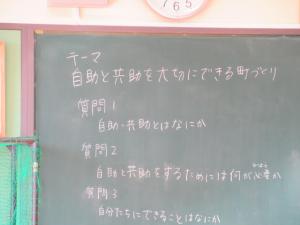 7 6 5
テーマ
自助と共助を大切にできる町づくり
質問1
自助・共助とはなにか
質問2
自助と共助をするためには何が必要か
質問3
自分たちにできることはなにか